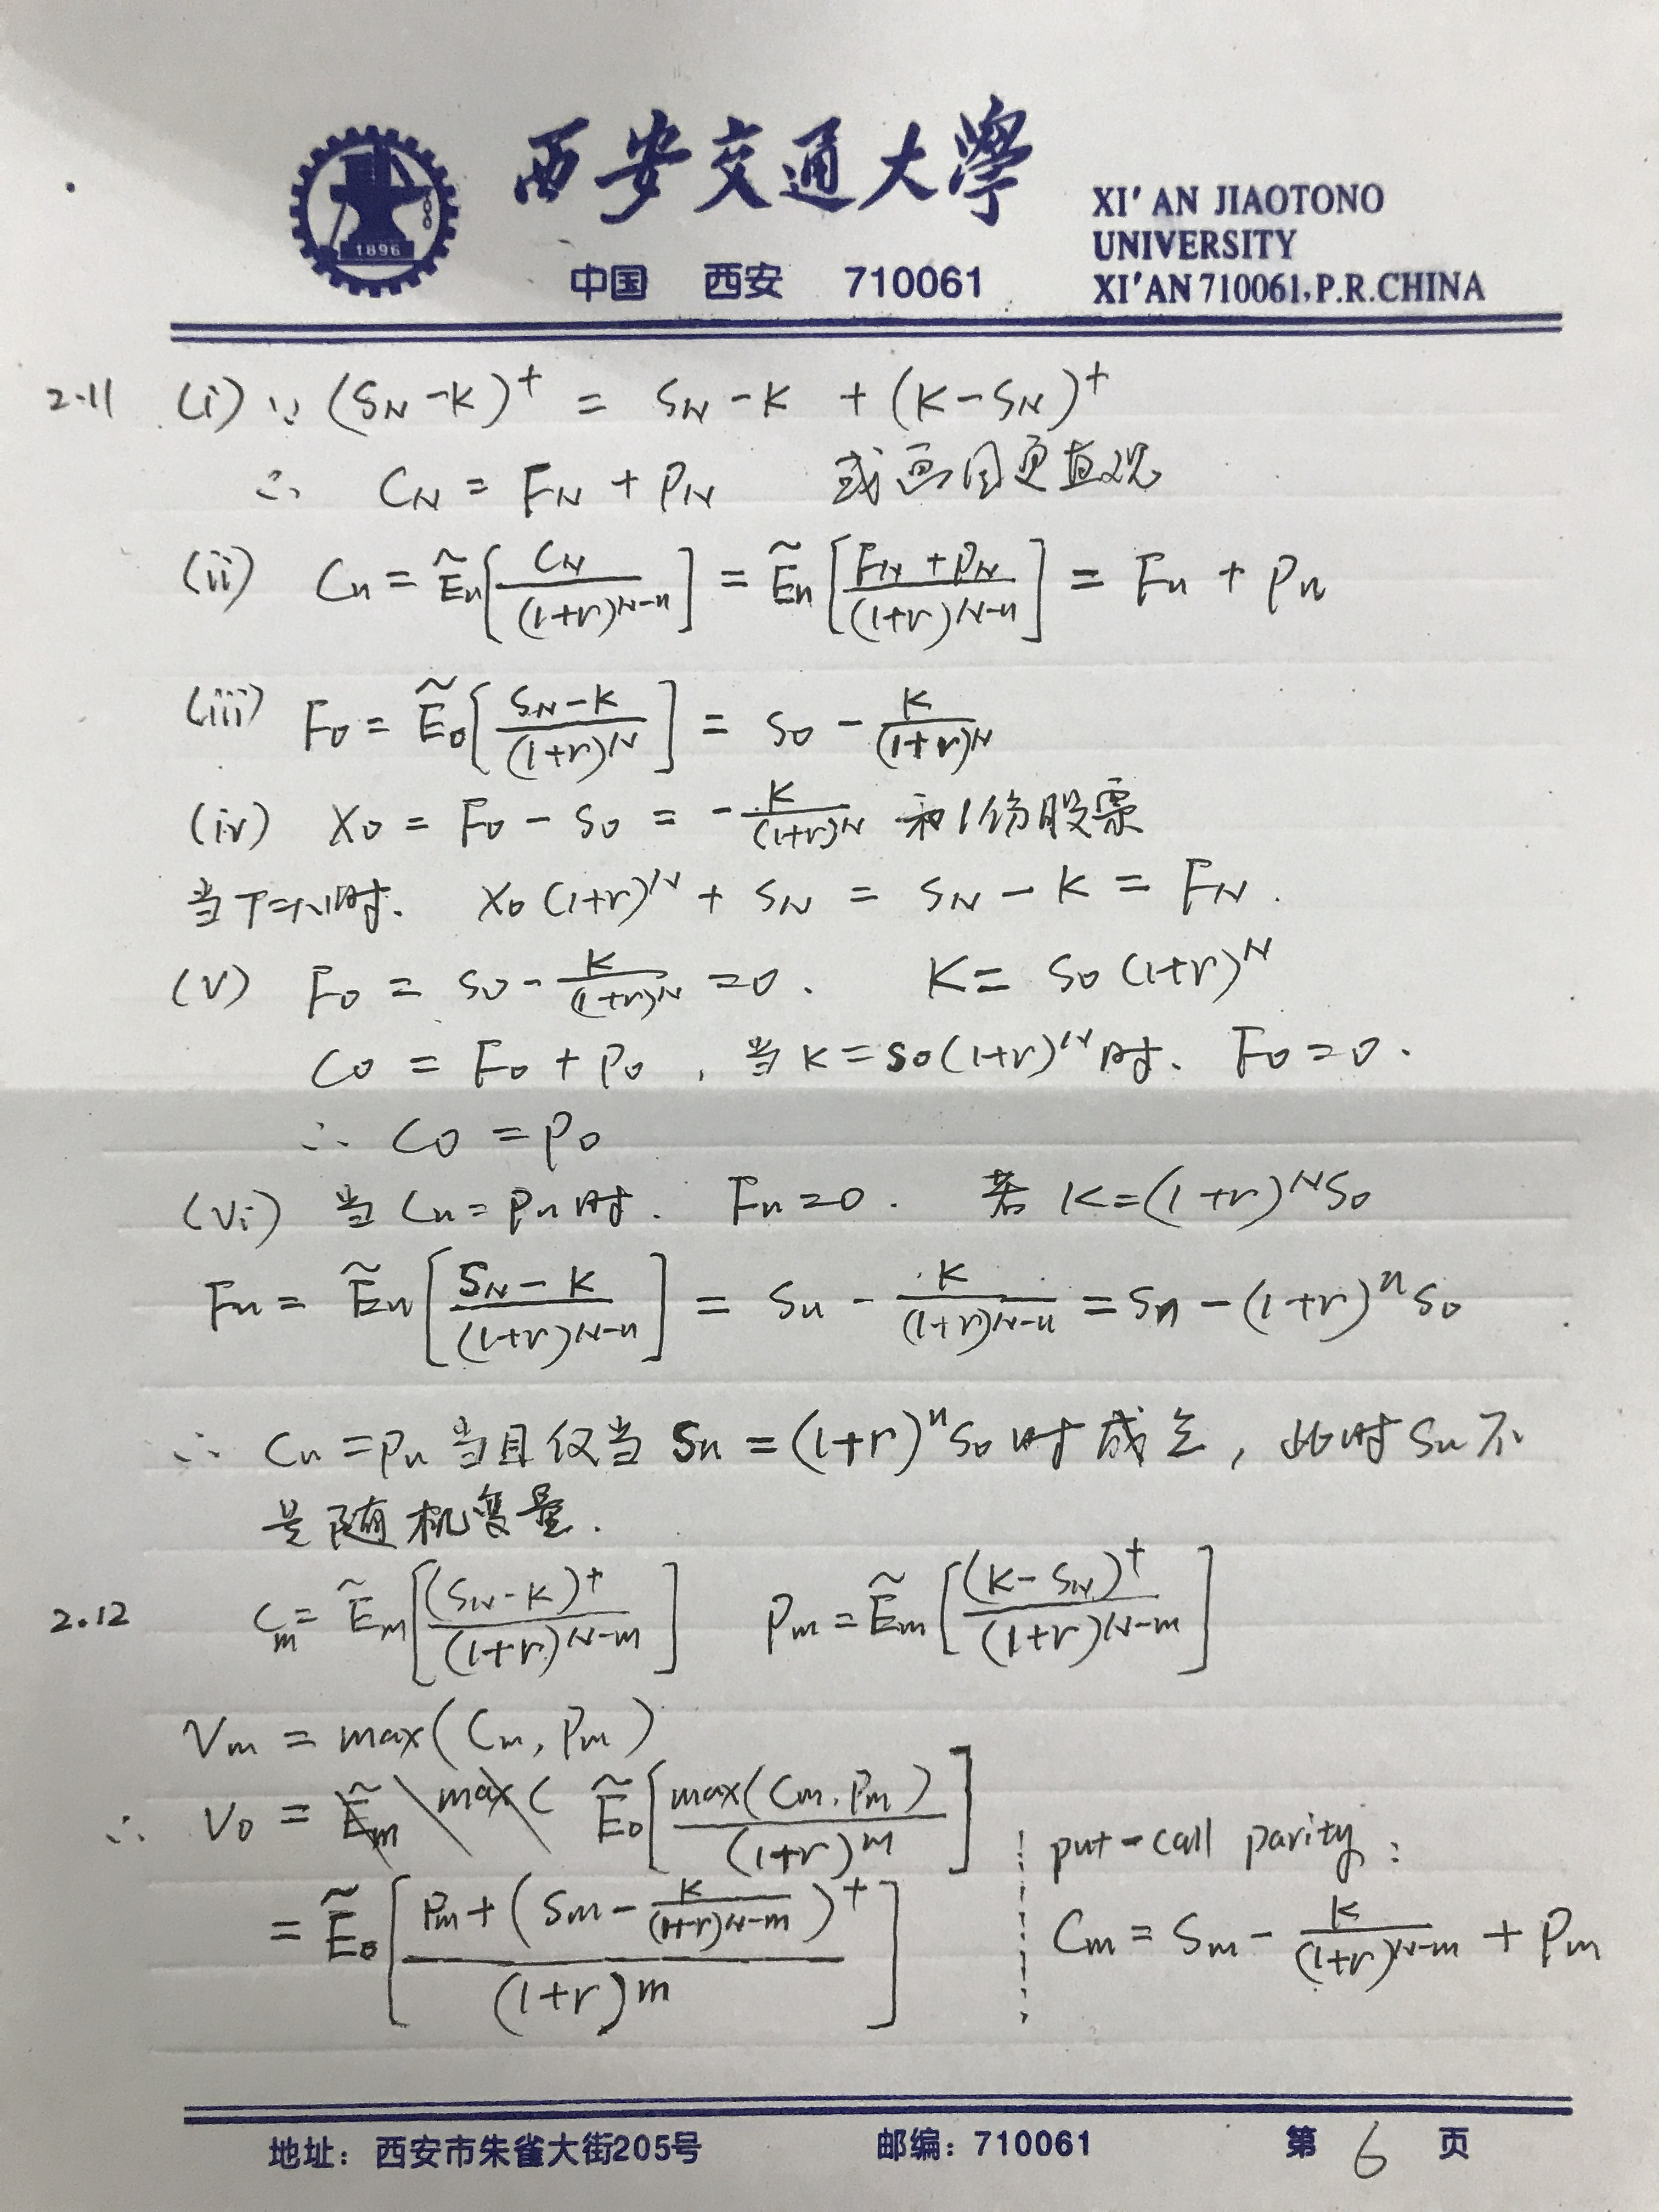 1896
西安交通大學
中国 西安 710061
XI'AN JIAOTONO
UNIVERSITY
XI'AN 710061, P.R.CHINA
2.11 (i) ∵ (S_N - K)^+ = S_N - K + (K - S_N)^+
∴ C_N = F_N + P_N 或画图更直观
(ii) C_n = Ẽ_n[C_N/(1+r)^{N-n}] = Ẽ_n[(F_N + P_N)/(1+r)^{N-n}] = F_n + P_n
(iii) F_0 = Ẽ_0[(S_N - K)/(1+r)^N] = S_0 - K/(1+r)^N
(iv) X_0 = F_0 - S_0 = -K/(1+r)^N 和1份股票
当T=N时. X_0(1+r)^N + S_N = S_N - K = F_N.
(v) F_0 = S_0 - K/(1+r)^N = 0. K = S_0(1+r)^N
C_0 = F_0 + P_0, 当K=S_0(1+r)^N时、F_0=0.
∴ C_0 = P_0
(vi) 当C_n=P_n时. F_n=0. 若K=(1+r)^N S_0
F_n = Ẽ_n[(S_N - K)/(1+r)^{N-n}] = S_n - K/(1+r)^{N-n} = S_n - (1+r)^n S_0
∴ C_n=P_n当且仅当S_n=(1+r)^n S_0时成立, 此时S_n不
是随机变量.
2.12 C_m = Ẽ_m[(S_N-K)^+/(1+r)^{N-m}] P_m = Ẽ_m[(K-S_N)^+/(1+r)^{N-m}]
V_m = max(C_m, P_m)
∴ V_0 = Ẽ_m max( Ẽ_0[max(C_m, P_m)/(1+r)^m]
put-call parity:
= Ẽ_0[(P_m + (S_m - K/(1+r)^{N-m})^+)/(1+r)^m]
C_m = S_m - K/(1+r)^{N-m} + P_m
地址：西安市朱雀大街205号 邮编：710061 第 6 页